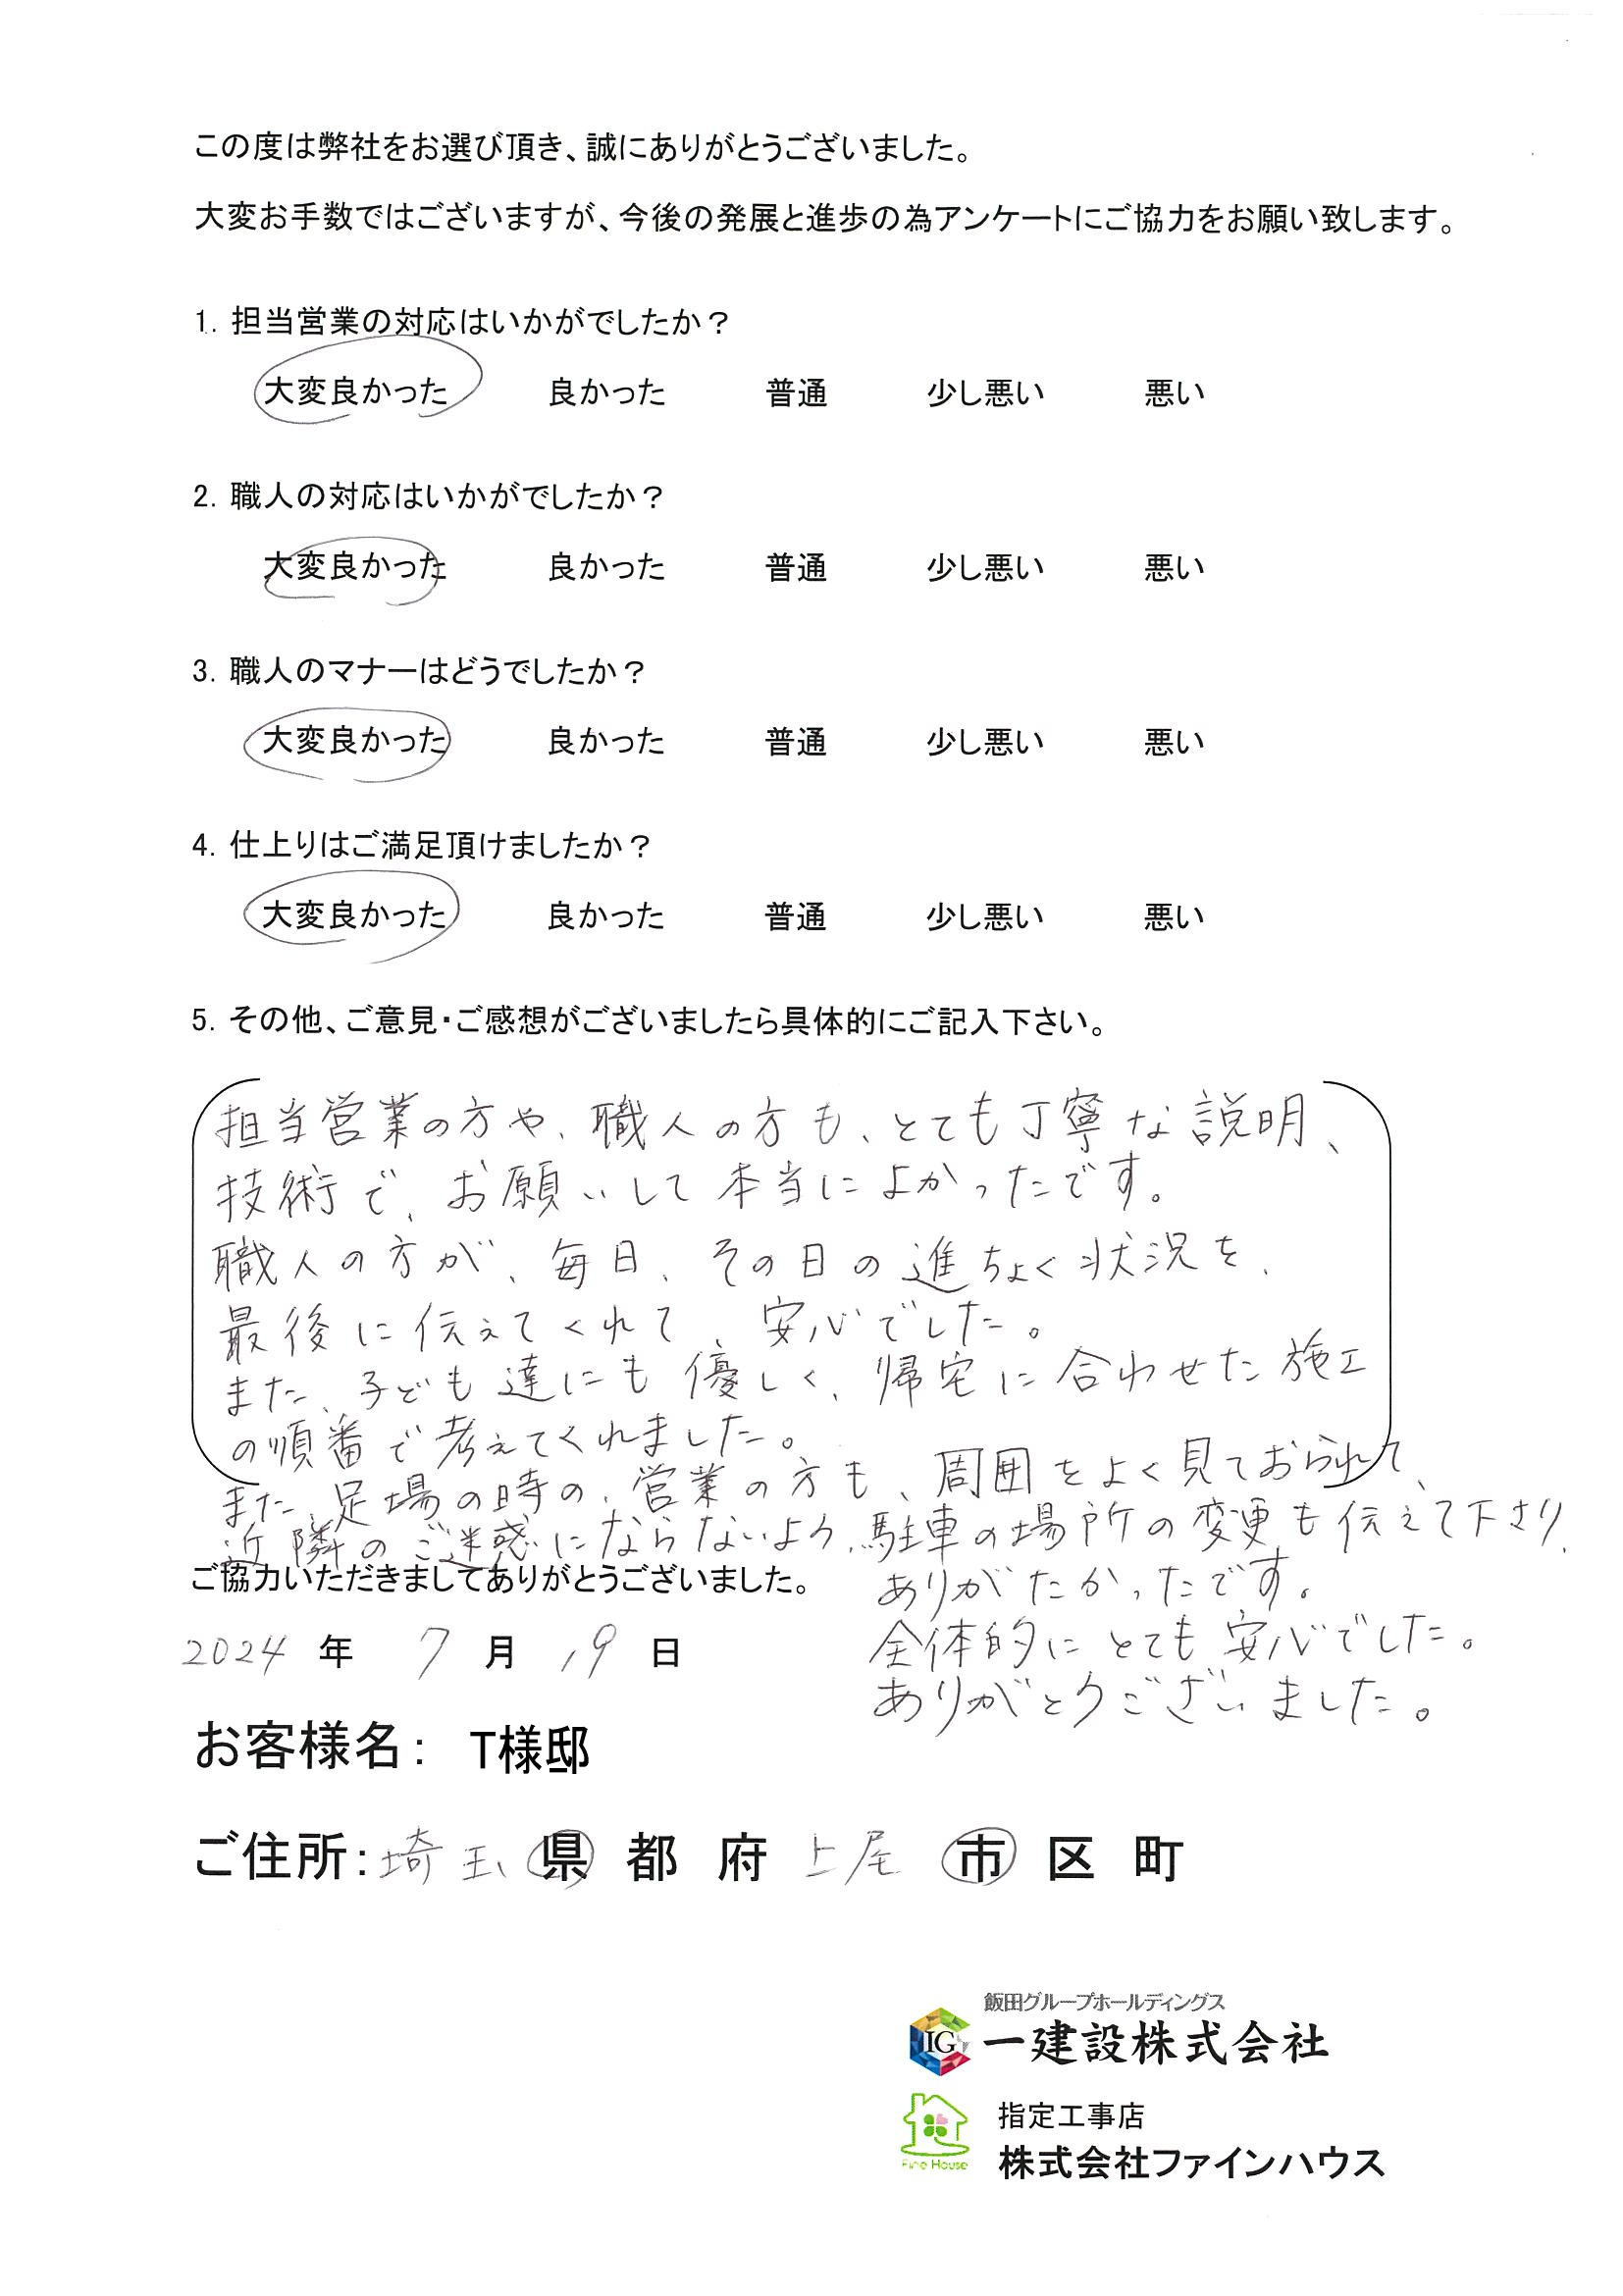 この度は弊社をお選び頂き、誠にありがとうございました。
大変お手数ではございますが、今後の発展と進歩の為アンケートにご協力をお願い致します。
1. 担当営業の対応はいかがでしたか？
大変良かった 良かった 普通 少し悪い 悪い
2. 職人の対応はいかがでしたか？
大変良かった 良かった 普通 少し悪い 悪い
3. 職人のマナーはどうでしたか？
大変良かった 良かった 普通 少し悪い 悪い
4. 仕上りはご満足頂けましたか？
大変良かった 良かった 普通 少し悪い 悪い
5. その他、ご意見・ご感想がございましたら具体的にご記入下さい。
担当営業の方や、職人の方も、とても丁寧な説明、
技術で、お願いして本当によかったです。
職人の方が、毎日、その日の進ちょく状況を、
最後に伝えてくれて、安心でした。
また、子ども達にも優しく、帰宅に合わせた施工
の順番で考えてくれました。
また、足場の時の、営業の方も、周囲をよく見ておられて、
近隣のご迷惑にならないよう、駐車の場所の変更も伝えて下さり、
ありがたかったです。
全体的にとても安心でした。
ありがとうございました。
ご協力いただきましてありがとうございました。
2024 年 7 月 19 日
お客様名： T様邸
ご住所：埼玉 県 都 府 上尾 市 区 町
飯田グループホールディングス
IG 一建設株式会社
指定工事店
Fine House 株式会社ファインハウス